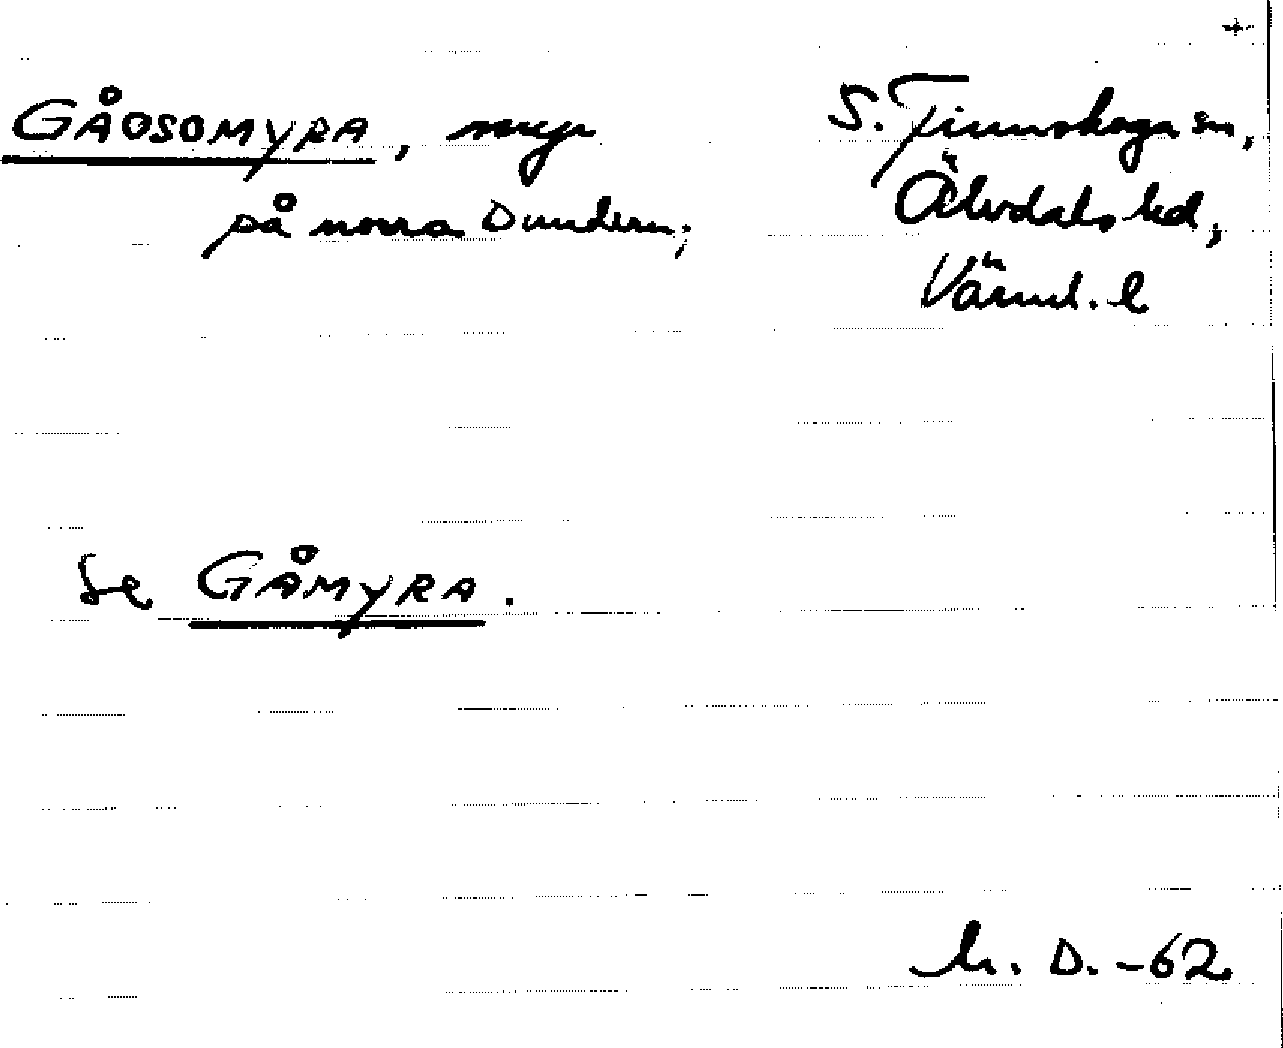 GÅOSOMYRA, myr
på norra Dundern;
S. Finnskoga sn,
Älvdals hd,
Värml. l
Se GÅMYRA.
h. D. -62